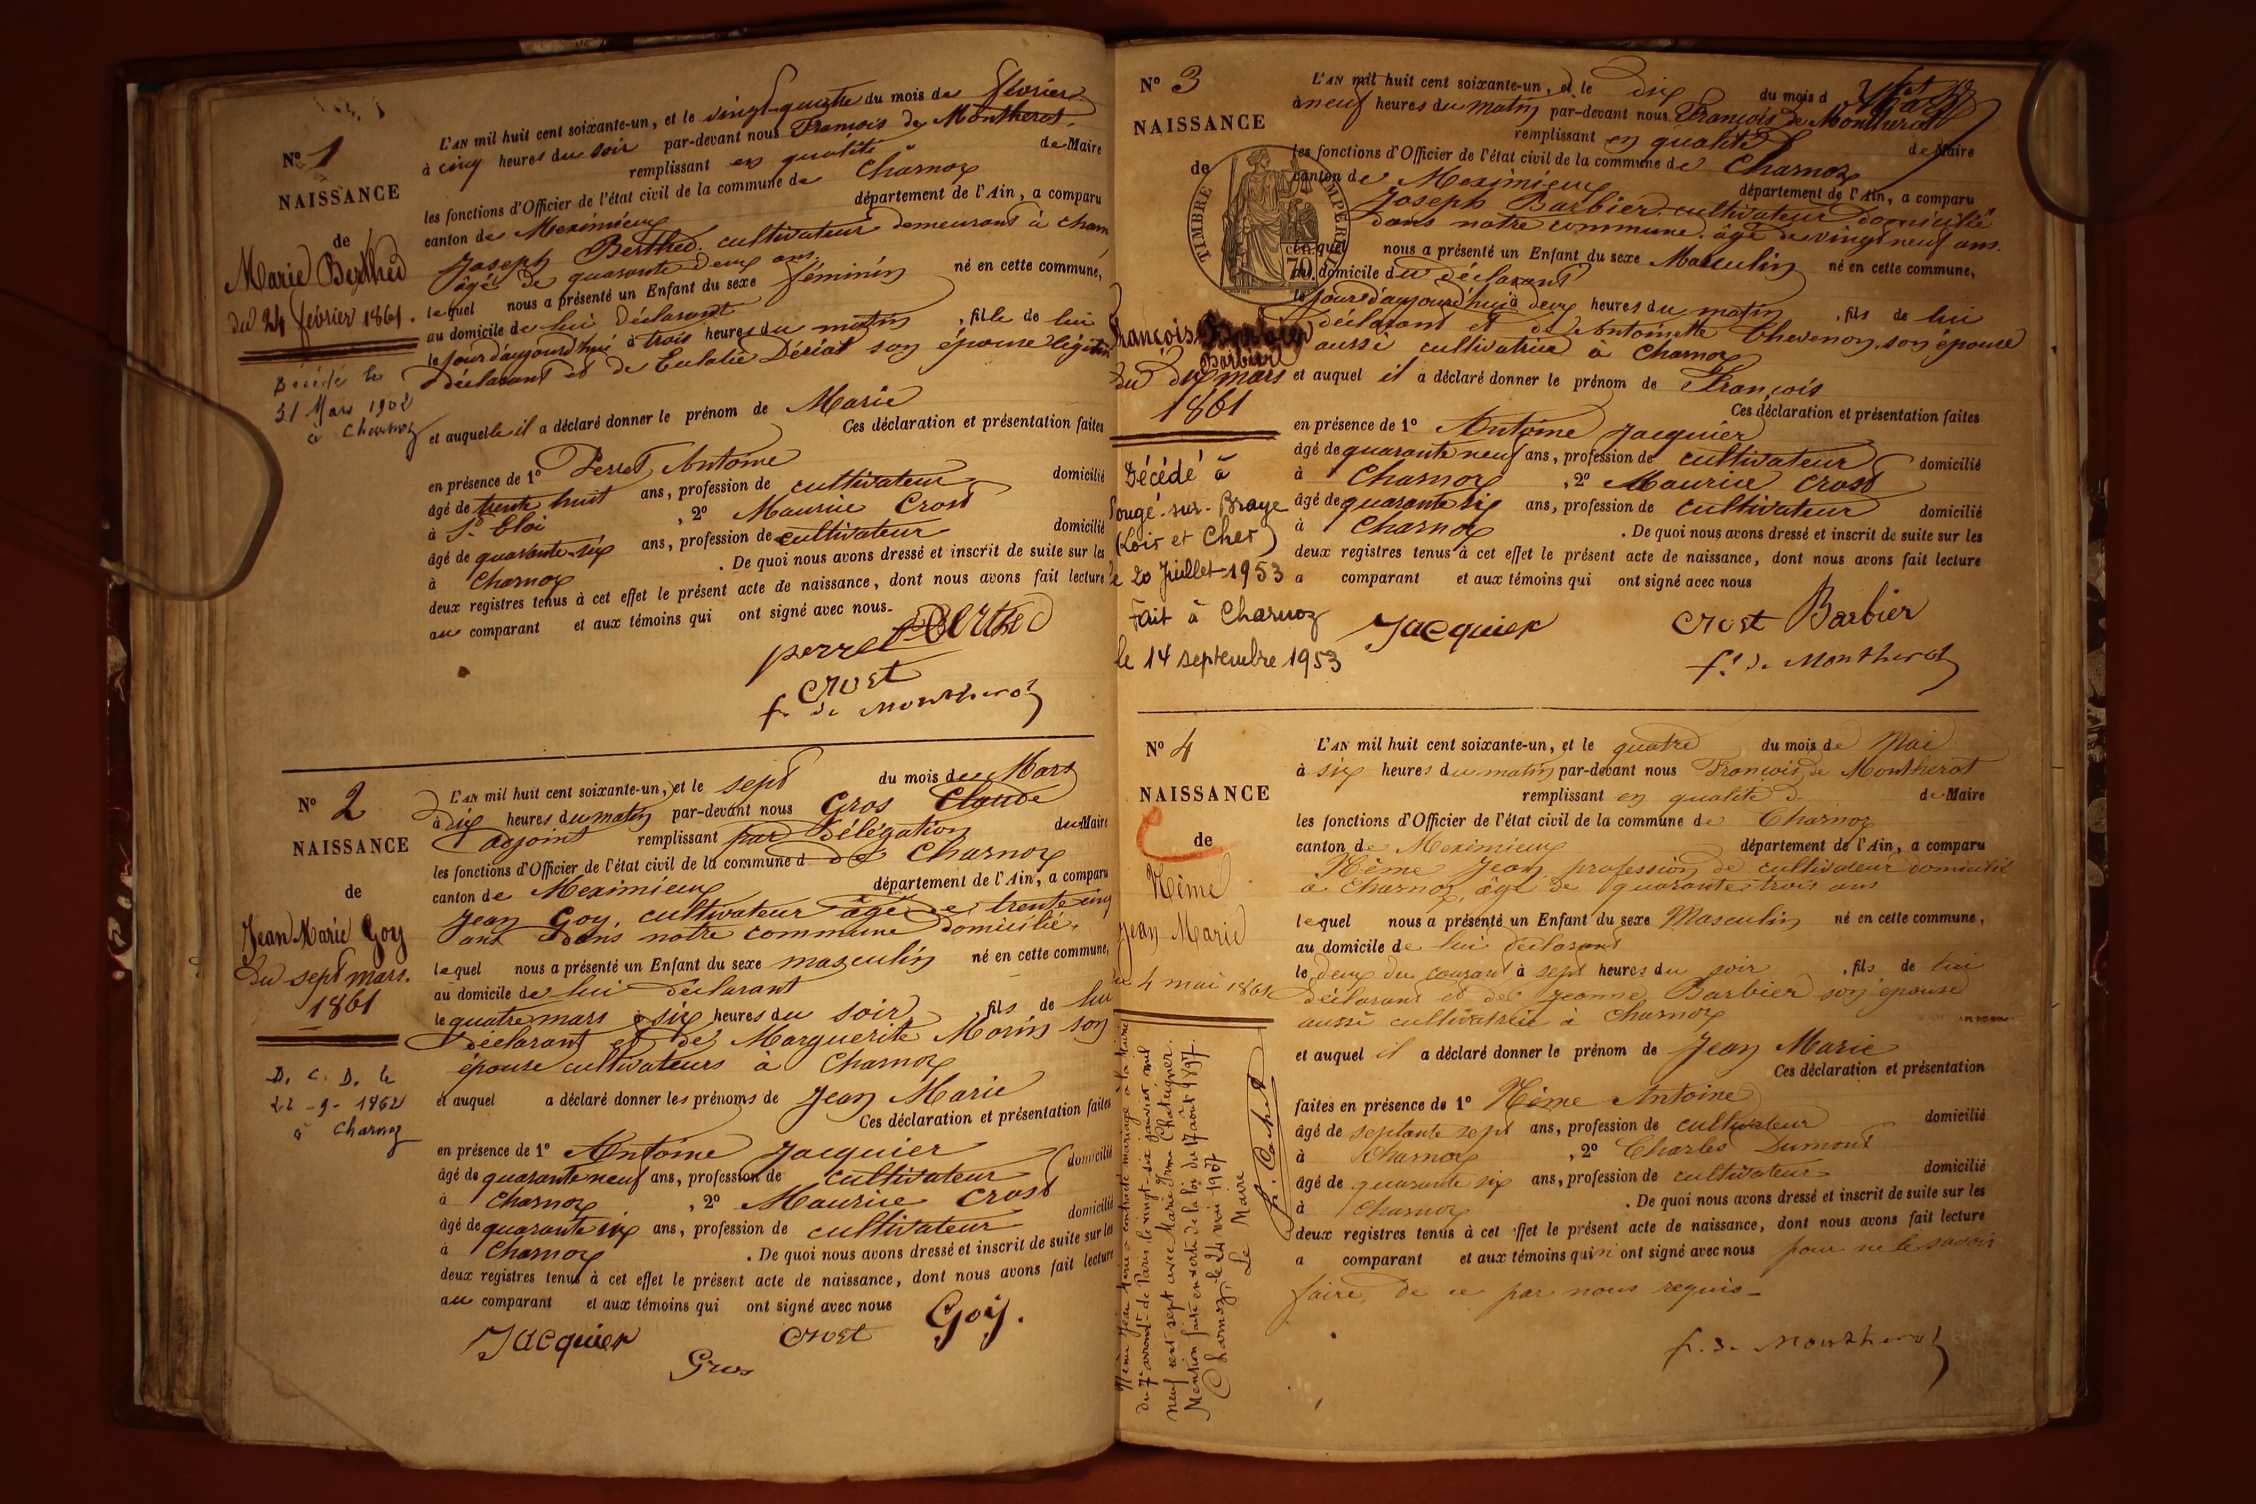 N° 1
NAISSANCE
de
Marie Berthed
du 24 février 1861.
Décédé le
31 Mars 1902
à Charnoz
L'AN mil huit cent soixante-un, et le vingt-quatre du mois de février
à cinq heures du soir par-devant nous François de Montherot
remplissant en qualité de Maire
les fonctions d'Officier de l'état civil de la commune de Charnoz
canton de Meximieux département de l'Ain, a comparu
Joseph Berthed. cultivateur demeurant à Charn
âgé de quarante deux ans.
lequel nous a présenté un Enfant du sexe féminin né en cette commune,
au domicile de lui déclarant
le jour d'aujourd'hui à trois heures du matin, fille de lui
déclarant et de Eulalie Dériat son épouse légitim
et auquelle il a déclaré donner le prénom de Marie
Ces déclaration et présentation faites
en présence de 1° Perret Antoine
âgé de trente huit ans, profession de cultivateur domicilié
à St. Eloi, 2° Maurice Crost
âgé de quarante-six ans, profession de cultivateur domicilié
à Charnoz. De quoi nous avons dressé et inscrit de suite sur les
deux registres tenus à cet effet le présent acte de naissance, dont nous avons fait lecture
au comparant et aux témoins qui ont signé avec nous.
perret Berthed
crost
f. de Montherot
N° 2
NAISSANCE
de
Jean Marie Goy
du sept mars.
1861
D. C. D. le
à Charnoz
L'AN mil huit cent soixante-un, et le sept du mois de Mars
à dix heures du matin par-devant nous Gros Claude
adjoint remplissant par Délégation du Maire
les fonctions d'Officier de l'état civil de la commune d de Charnoz
canton de Meximieux département de l'Ain, a comparu
Jean Goy. cultivateur âgé de trente cinq
ans dans notre commune domicilié.
lequel nous a présenté un Enfant du sexe masculin né en cette commune,
au domicile de lui déclarant
le quatre mars à six heures du soir, fils de lui
déclarant et de Marguerite Morin son
épouse cultivateurs à Charnoz
et auquel a déclaré donner les prénoms de Jean Marie
Ces déclaration et présentation faites
en présence de 1° Antoine Jacquier
âgé de quarante neuf ans, profession de cultivateur domicilié
à Charnoz, 2° Maurice Crost
âgé de quarante six ans, profession de cultivateur domicilié
à Charnoz. De quoi nous avons dressé et inscrit de suite sur les
deux registres tenus à cet effet le présent acte de naissance, dont nous avons fait lecture
au comparant et aux témoins qui ont signé avec nous
Jacquier crost Goy.
Gros
N° 3
NAISSANCE
de
TIMBRE IMPERIAL
70
François Barbier
Barbier
du dix mars
1861
Décédé à
Sougé-sur-Braye
(Loir et Cher)
le 20 Juillet 1953
Fait à Charnoz
le 14 septembre 1953
L'AN mil huit cent soixante-un, et le dix du mois d Mars
à neuf heures du matin par-devant nous François de Montherot
remplissant en qualité de Maire
les fonctions d'Officier de l'état civil de la commune de Charnoz
canton de Meximieux département de l'Ain, a comparu
Joseph Barbier. cultivateur domicilié
dans notre commune. âgé de vingt neuf ans.
lequel nous a présenté un Enfant du sexe Masculin né en cette commune,
au domicile du déclarant
le jour d'aujourd'hui à deux heures du matin, fils de lui
déclarant et de Antoinette Thevenon. son épouse
aussi cultivatrice à Charnoz
et auquel il a déclaré donner le prénom de François
Ces déclaration et présentation faites
en présence de 1° Antoine Jacquier
âgé de quarante neuf ans, profession de cultivateur domicilié
à Charnoz, 2° Maurice Crost
âgé de quarante six ans, profession de cultivateur domicilié
à Charnoz. De quoi nous avons dressé et inscrit de suite sur les
deux registres tenus à cet effet le présent acte de naissance, dont nous avons fait lecture
a comparant et aux témoins qui ont signé avec nous
Jacquier crost Barbier
f. de Montherot
N° 4
NAISSANCE
de
Nême
Jean Marie
du 4 mai 1861
Nême Jean Marie a contracté mariage à la Mairie
du 7e arrondt de Paris le vingt-six janvier mil
neuf cent sept avec Marie Irma Chateigner.
Mention faite en vertu de la loi du 17 août 1897.
Charnoz, le 24 mai 1907
Le Maire
L'AN mil huit cent soixante-un, et le quatre du mois de Mai
à six heures du matin par-devant nous François de Montherot
remplissant en qualité de Maire
les fonctions d'Officier de l'état civil de la commune de Charnoz
canton de Meximieux département de l'Ain, a comparu
Nême Jean profession de cultivateur domicilié
à Charnoz, âgé de quarante trois ans
lequel nous a présenté un Enfant du sexe Masculin né en cette commune,
au domicile de lui déclarant
le deux du courant à sept heures du soir, fils de lui
déclarant et de Jeanne Barbier son épouse
aussi cultivatrice à Charnoz
et auquel il a déclaré donner le prénom de Jean Marie
Ces déclaration et présentation
faites en présence de 1° Nême Antoine
âgé de septante sept ans, profession de cultivateur domicilié
à Charnoz, 2° Charles Dumont
âgé de quarante six ans, profession de cultivateur domicilié
à Charnoz. De quoi nous avons dressé et inscrit de suite sur les
deux registres tenus à cet effet le présent acte de naissance, dont nous avons fait lecture
a comparant et aux témoins qui n'ont signé avec nous pour ne le savoir
faire, de ce par nous requis.
f. de Montherot